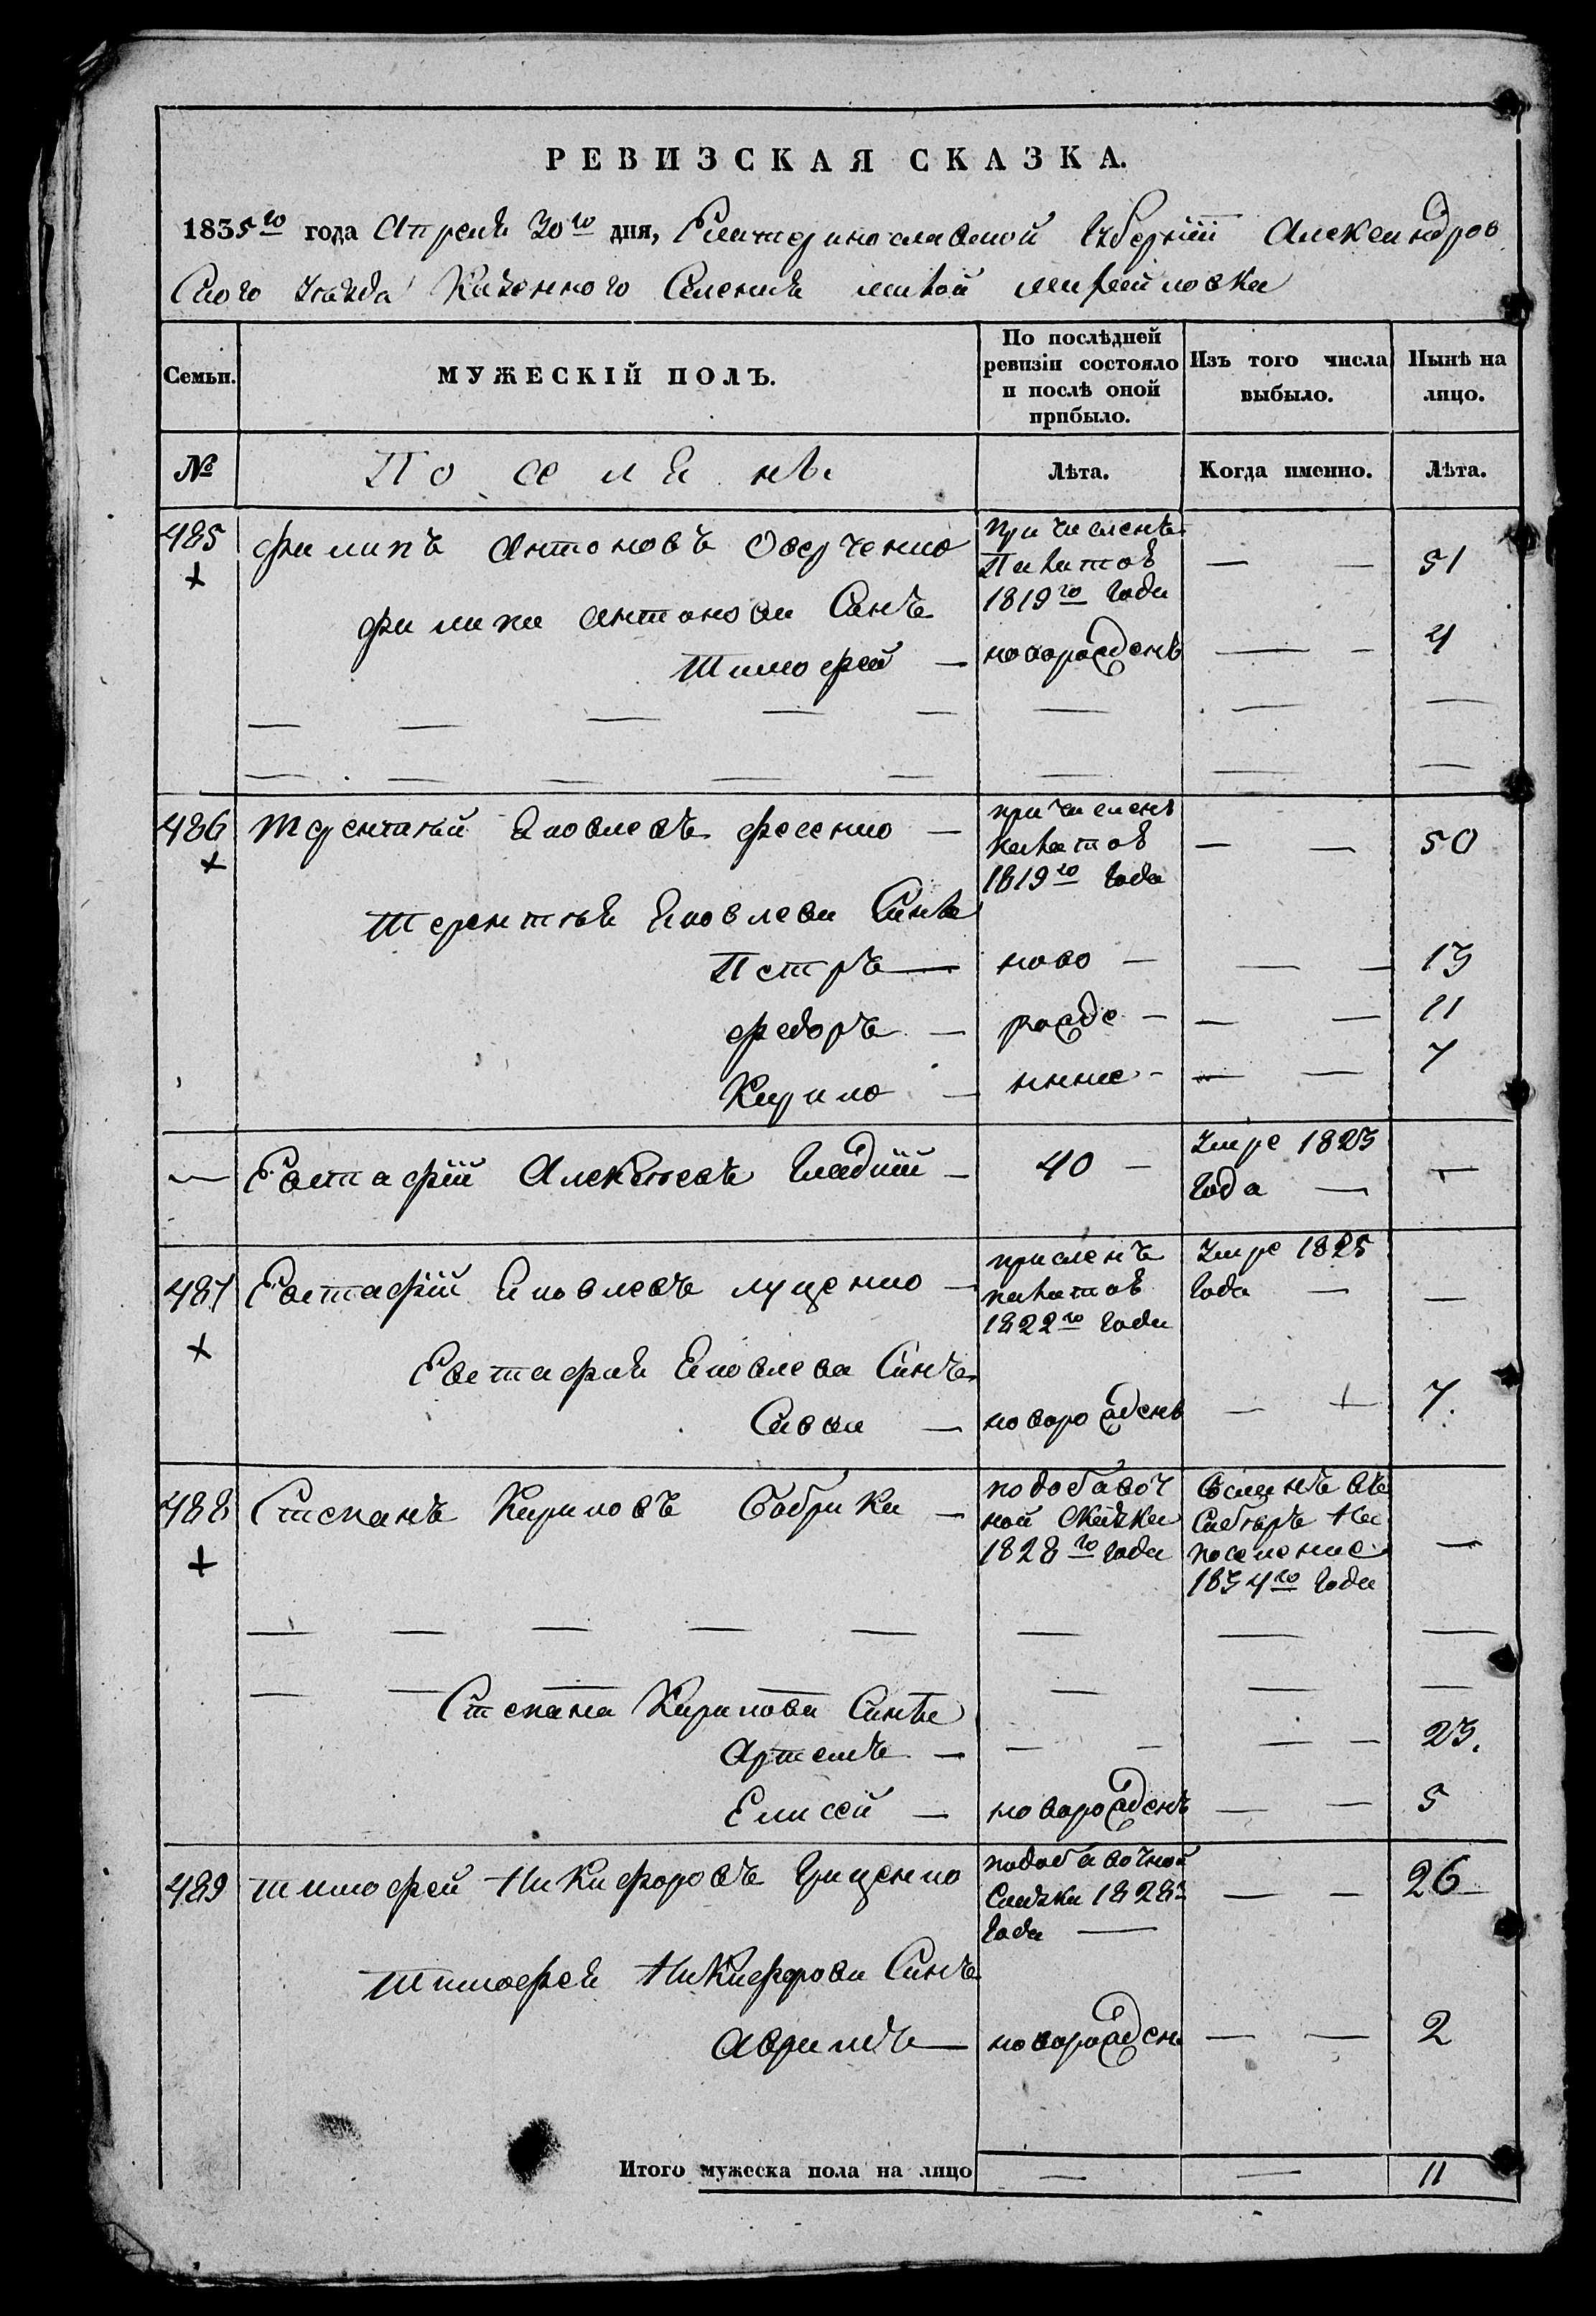 РЕВИЗСКАЯ СКАЗКА.
1835го года Апреля 30го дня, Екатеринославской Губерніи Александров
скаго уезда Казенного Селения
Семьи. МУЖЕСКІЙ ПОЛЪ. По послѣдней ревизіи состояло и послѣ оной прибыло. Изъ того числа выбыло. Нынѣ на лицо.
№ Поселяне Лѣта. Когда именно. Лѣта.
485 Филипъ Антоновъ Оверченко причисленъ
+ Палатою — — 51
1819го года
Филипа Антонова Сынъ
Тимофей — новорожденъ — — 4
— — — — — — — —
— — — — — — — —
486 Терентий Яковлевъ Фесенко — причисленъ
+ палатою — — 50
1819го года
Терентья Яковлева Сыны
Петръ — ново — — — 13
Федоръ — рожде — — — 11
Кирило — нные — — — 7
— Евстафій Алексѣевъ Гладкій — 40 — Умре 1823 года — —
487 Евстафій Яковлевъ луценко — присленъ Умре 1825
+ палатою года — —
1822го года
Евстафия Яковлева Сынъ
Савва — новорожденъ — + 7.
488 Степанъ Кириловъ Бабрика — подобавоч Сосланъ въ
+ ной Скаски Сибирь на
1828го года поселение —
1834го года
— — — — — — — —
— — — — — — —
Степана Кирилова Сыны
Артемъ — — — — — 23.
Елисей — новорожденъ — — 5
489 Тимофей Никифоровъ Грищенко подобавочной
сказки 1828го — — 26
года —
Тимофея Никифорова Сынъ
Авримъ — новорожденъ — — 2
Итого мужеска пола на лицо — — 11